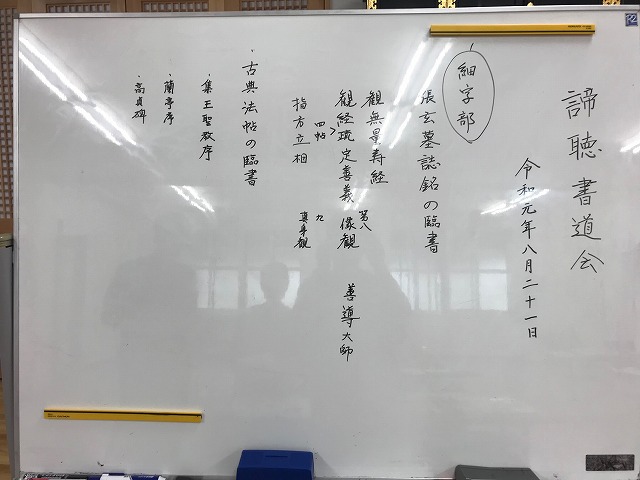 諦聴書道会
令和元年八月二十一日
細字部
張玄墓誌銘の臨書
観無量寿経
観経疏定善義 第八 像観 善導大師
四帖
指方立相 九 真身観
・古典法帖の臨書
・集王聖教序
・蘭亭序
・高貞碑